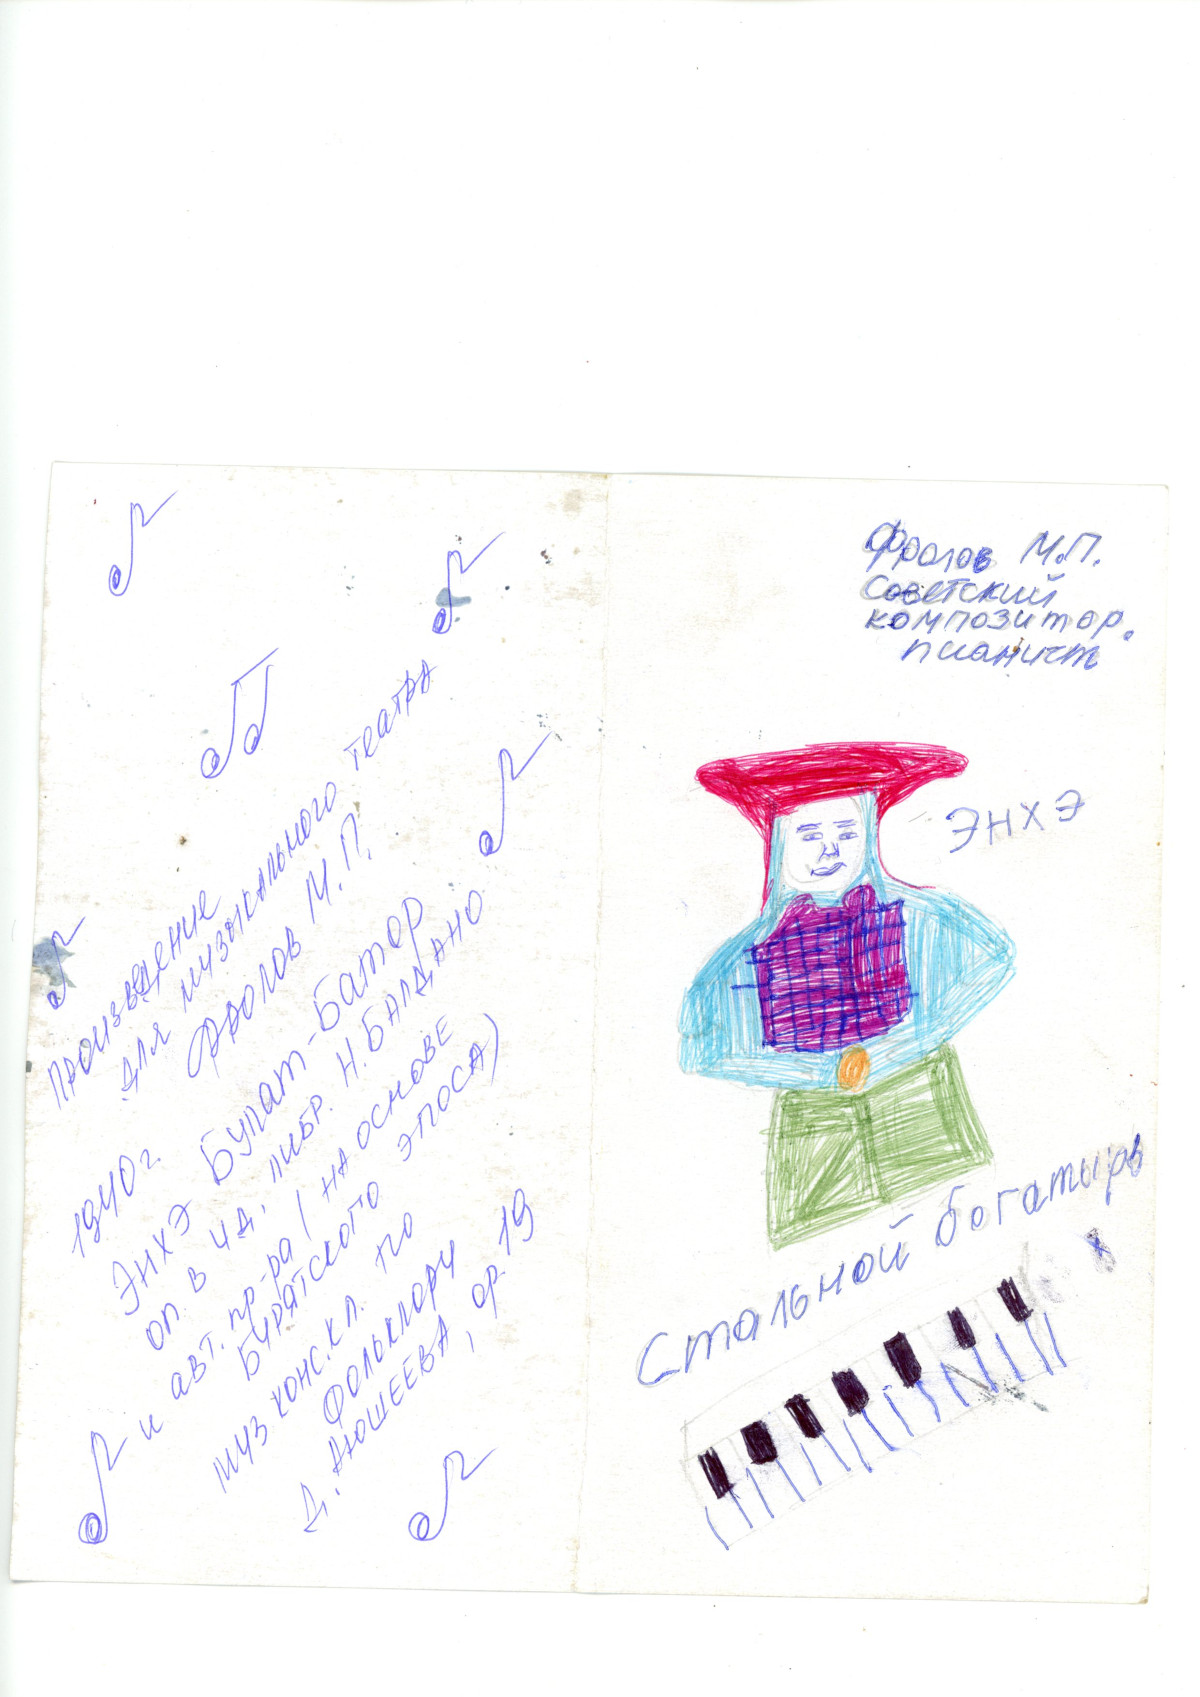 Произведение
для музыкального театра
Фролов М.П.
1940г.
Энхэ Булат-Батор
оп. в 4д., либр. Н.Балдано
и авт. пр-ра (на основе
Бурятского эпоса)
муз конс.кл. по
фольклору
Д. Аюшеева, ор. 19
Фролов М.П.
Советский
композитор.
пианист
Энхэ
Стальной богатырь